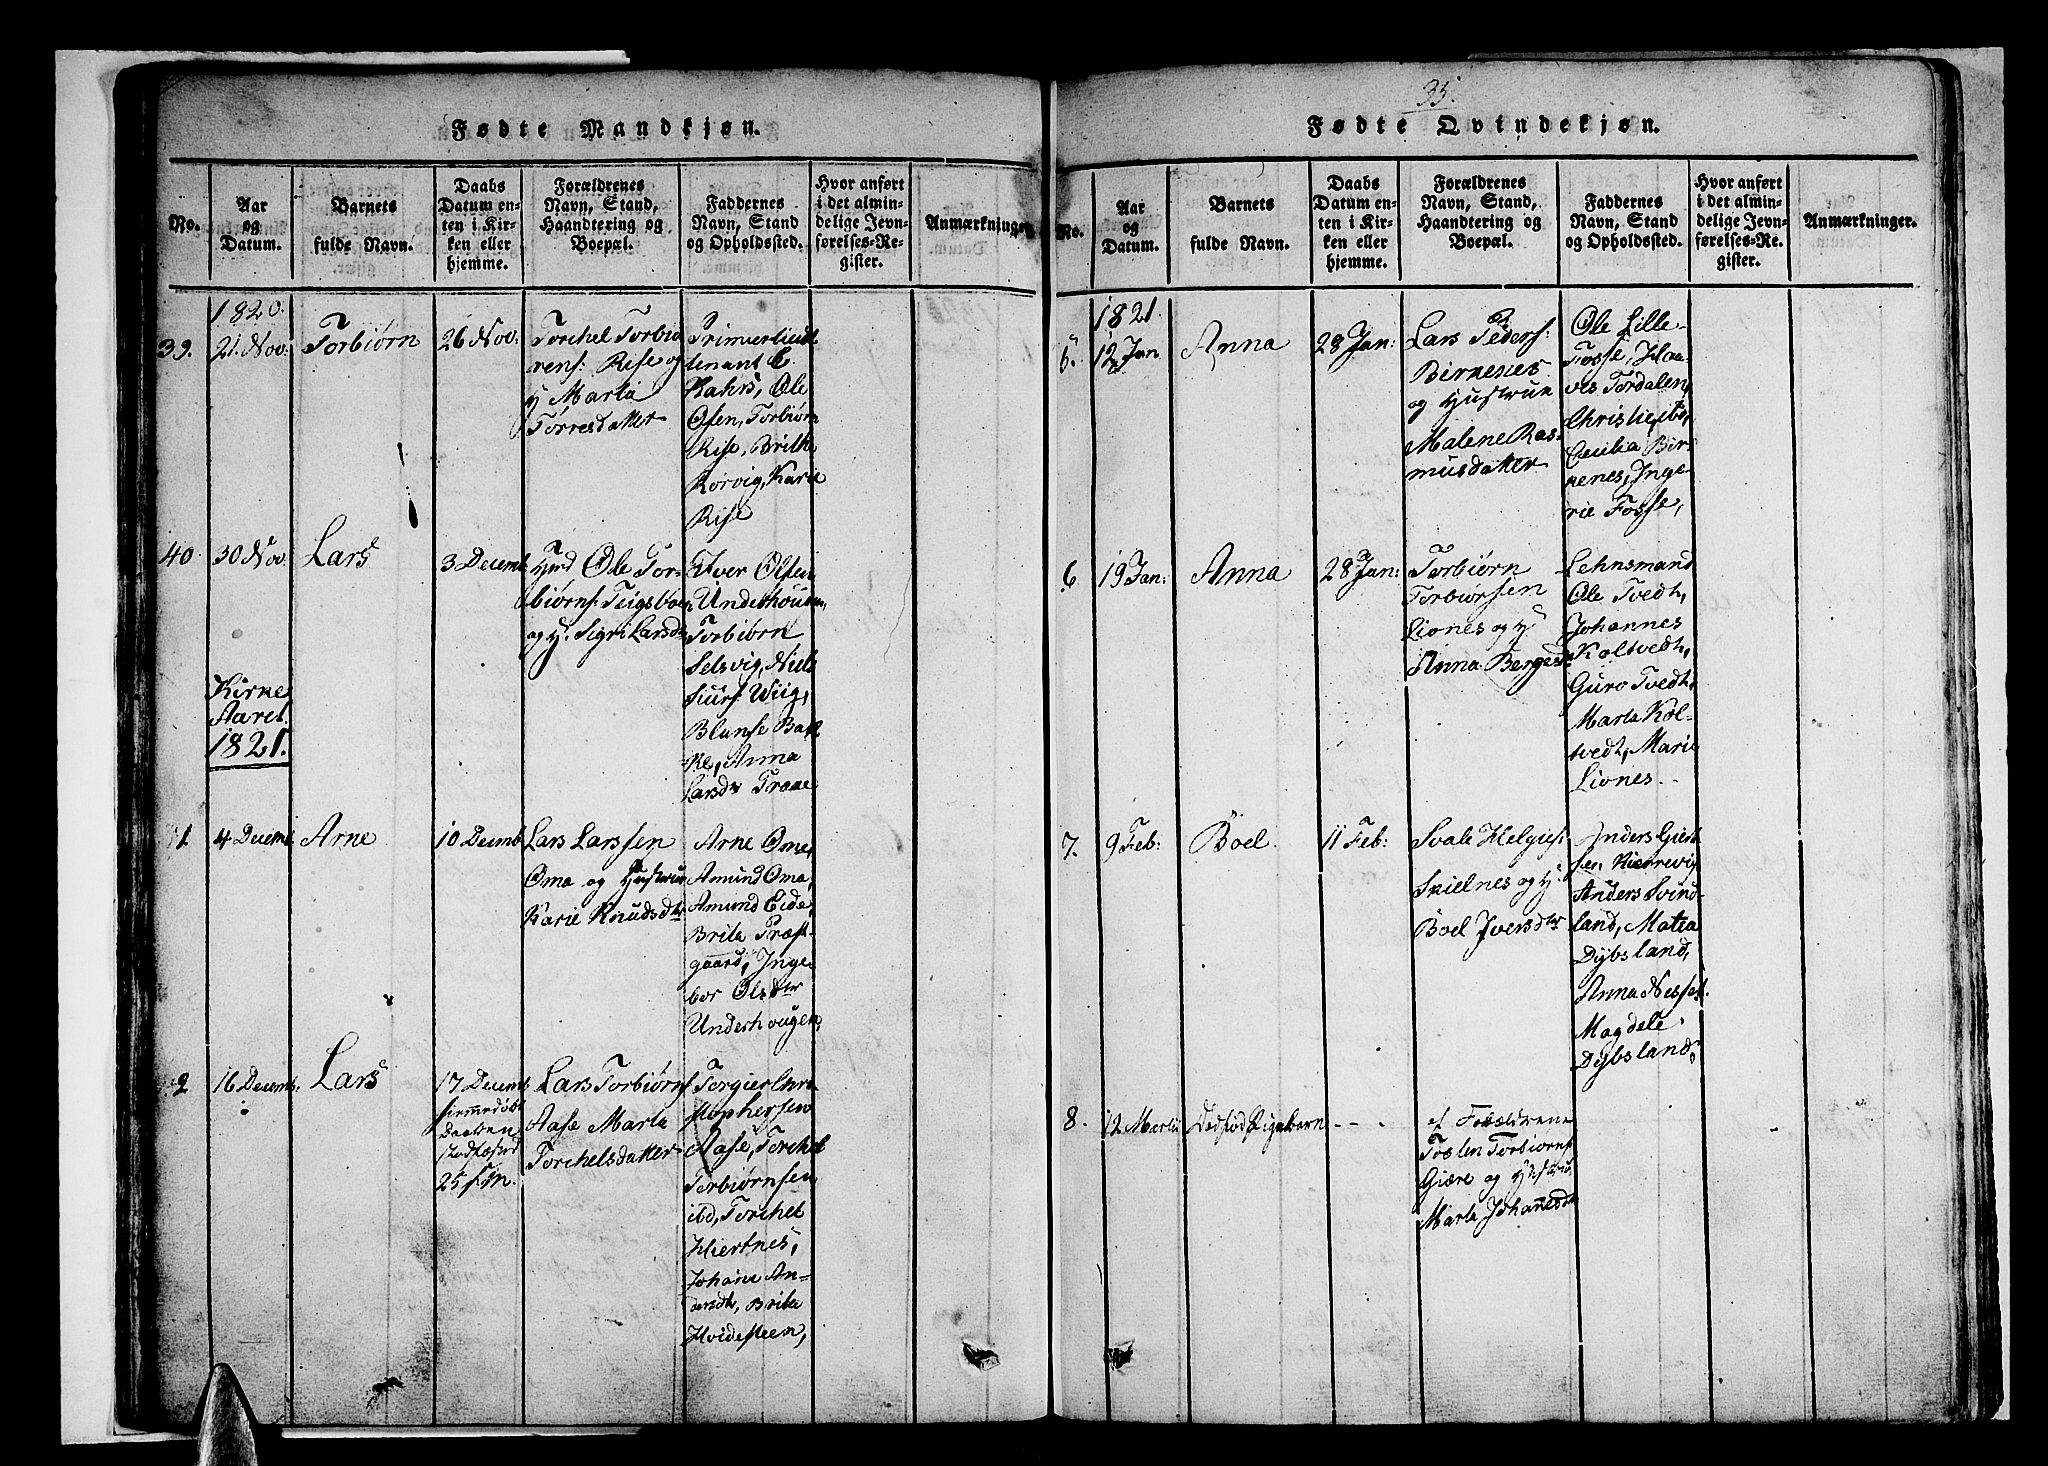 35.
Fødte Mandkjøn.
No.
Aar
og
Datum.
Barnets
fulde Navn.
Daabs
Datum en-
ten i Kir-
ken eller
hjemme.
Forældrenes
Navn, Stand,
Haandtering og
Boepæl.
Faddernes
Navn, Stand
og Opholdssted.
Hvor anført
i det almin-
delige Jevn-
førelses-Re-
gister.
Anmærkninger
1820.
39.
21. Nov:
Torbiørn
26 Nov:
Torchel Torbiø
rens: Rise og
H Marta
Torresdatter
Primierlieut
tenant C.
Kahrs, Ole
Olsen, Torbiørn
Rise, Brithe
Rorvig, Karie
Rise
40.
30 Nov.
Lars
3 Decemb
Hmd Ole Tor-
biørns: Teigsboen
og H. Sigri Larsd
Iver Olsen
Underhougen,
Torbiørn
Selsvig, Niels
Siurs: Wiig,
Blanse Bak
ke, Anna
Larsdr Traae
Kirke
Aaret
1821.
1.
4 Decemb
Arne
10 Decemb
Lars Larssen
Oma og Hustrue
Karie Knudsdtr
Arne Oma,
Amund Oma,
Amund Eide,
Brita Præst-
gaard, Inge-
bor Olsdtr
Underhougen,
2
16 Decemb.
Lars
17 Decemb
hiemmedøbt
Daaben
stadfæsted
25 s. M.
Lars Torbiørns
Aase Marta
Torchelsdatter
Torgier Chri
stophersen
Aase, Torchel
Torbiørnsen
ibd, Torchel
Hiertnes,
Johane An-
andt, Brita
Hvidesteen,
Fødte Qvindekjøn.
No.
Aar
og
Datum.
Barnets
fulde Navn.
Daabs
Datum en-
ten i Kir-
ken eller
hjemme.
Forældrenes
Navn, Stand,
Haandtering og
Boepæl.
Faddernes
Navn, Stand
og Opholdssted.
Hvor anført
i det almin-
delige Jevn-
førelses-Re-
gister.
Anmærkninger.
1821.
5.
12 Jan
Anna
28 Jan:
Lars Peders:
Birkenes
og Hustrue
Malene Ras-
musdatter
Ole Lille-
Fosse, Haa-
vei Tordalen,
Christie ibd,
Cecilia Bir-
kenes, Inge-
rie Fosse,
6
19 Jan:
Anna
28 Jan:
Torbiørn
Torbiørsen
Liones og H
Anna Bergesdr
Lehnsmand
Ole Tvedt,
Johannes
Koltvedt,
Guro Tvedt,
Marta Kol-
tvedt, Mari
Liones
7.
9 Feb:
Boel
11 Feb:
Svale Helgies:
Skielnes og H.
Boel Iversdtr
Anders Giert
sen Kierrevig
Anders Svind-
land, Matea
Dybsland,
Anna Nesset.
Magdele
Dybsland,
8.
12 Martii
Dødfød Pigebarn
- - -
af Forældrene
Torbiørns
Giære og Hustrue
Marta Johanesdr